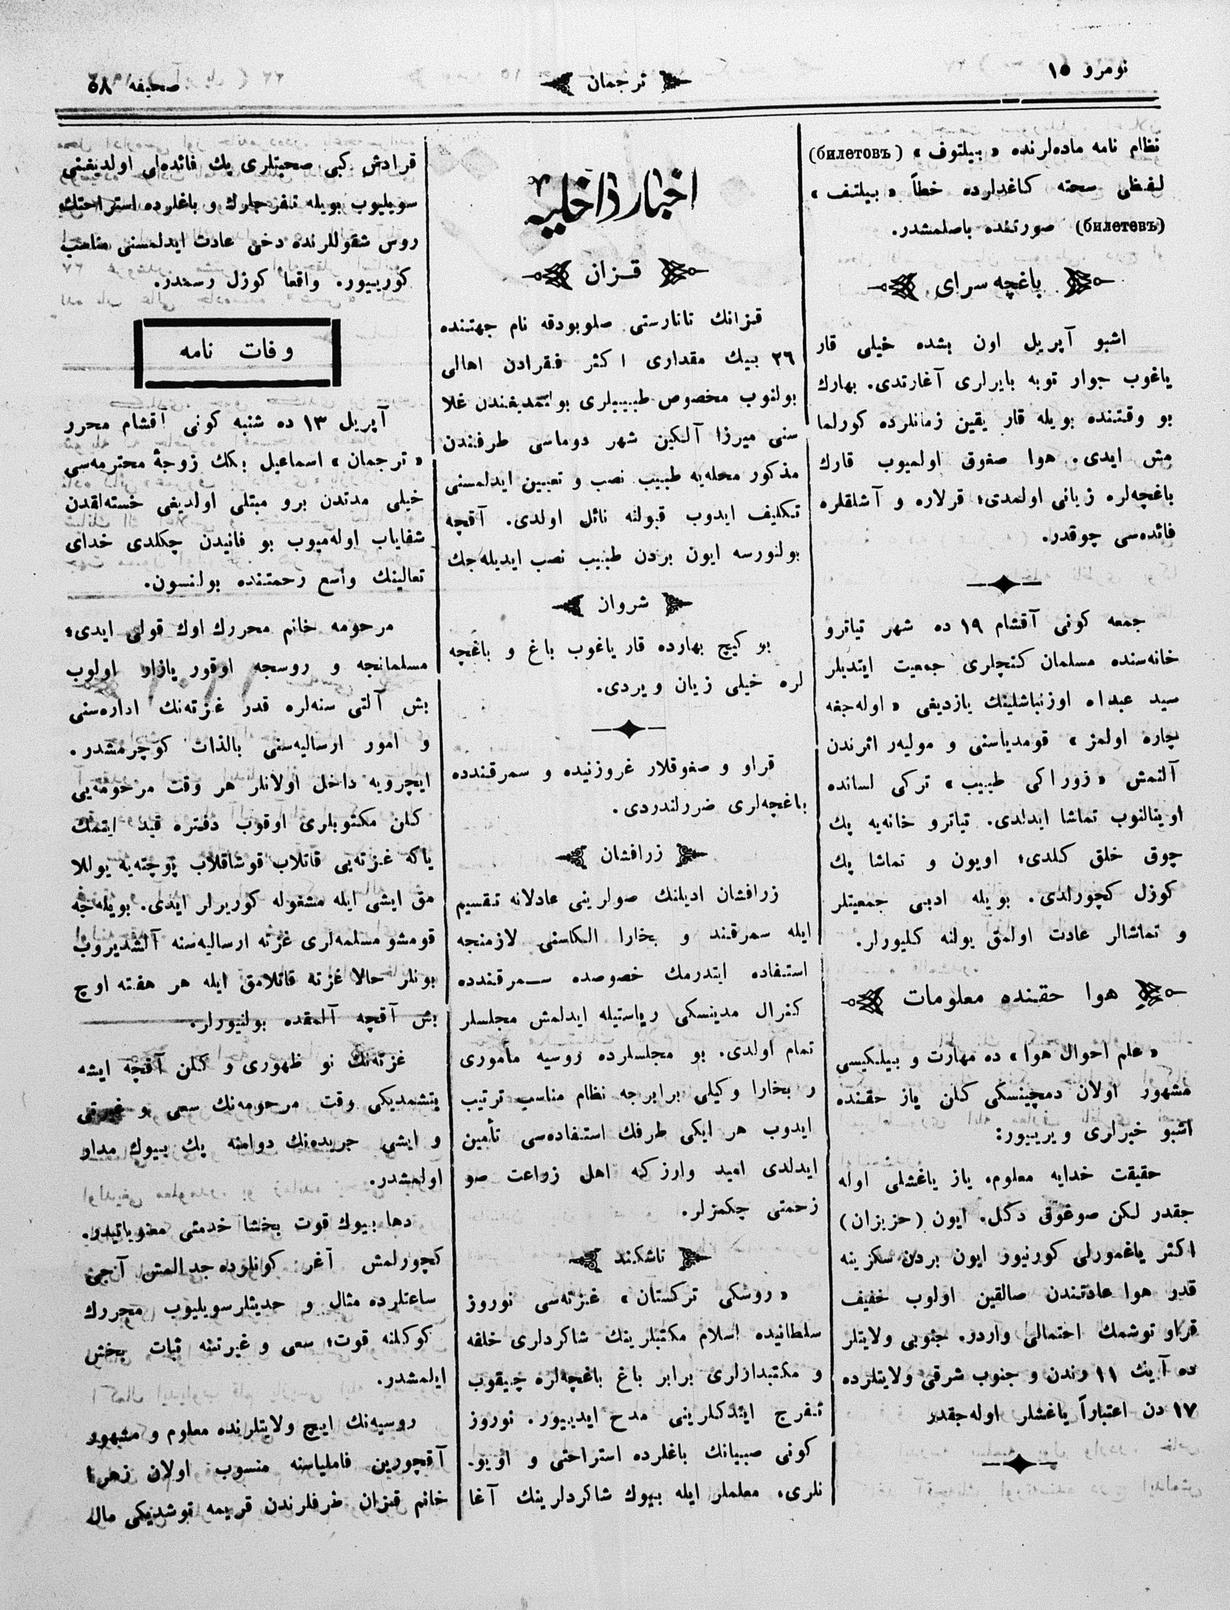 نومرو ١٥
ترجمان
صحيفه ٥٨
نظام نامه ماده‌لرنده « بيلتوف » (билетовъ)
لفظى سحته كاغدلرده خطاً « بيلتف »
(билетевъ) صورتنده باصلمشدر.
باغچه سراى
اشبو آپريل اون بشده خيلى قار
ياغوب جوار توبه بايرلرى آغارتدى. بهارك
بو وقتنده بويله قار يقين زمانلرده كورلما
مش ايدى. هوا صغوق اولميوب قارك
باغچه‌لره زيانى اولمدى؛ قرلاره و آشلقلره
فائده‌سى چوقدر.
جمعه كونى آقشام ١٩ ده شهر تياترو
خانه‌سنده مسلمان كنچلرى جمعيت ايتديلر
سيد عبداه اوزنباشلينك يازديغى « اوله‌جغه
چاره اولمز » قومدياسنى و موليەر اثرندن
آلنمش « زوراكى طبيب » تركى لسانده
اوينالنوب تماشا ايدلدى. تياترو خانه‌يه پك
چوق خلق كلدى؛ اويون و تماشا پك
كوزل كچورلدى. بويله ادبى جمعيتلر
و تماشالر عادت اولمق يولنه كليورلر.
هوا حقنده معلومات
« علم احوال هوا » ده مهارت و بيليكيسى
مشهور اولان دمچينسكى كلن ياز حقنده
اشبو خبرلرى ويرييور:
حقيقت خدايه معلوم، ياز ياغشلى اوله
جقدر لكن صوغوق دكل. ايون (حزيران)
اكثر ياغمورلى كورنيور ايون بردن سكزينه
قدر هوا عادتندن صالقين اولوب خفيف
قراو توشمك احتمالى واردر. جنوبى ولايتلر
ده آينك ١١ رندن و جنوب شرقى ولايتلرده
١٧ دن اعتباراً ياغشلر اوله‌جقدر
اخبار داخليه
قزان
قزانك تاتارستى صلوبودقه نام جهتنده
٢٦ بيك مقدارى اكثر فقرادن اهالى
بولنوب مخصوص طبيبلرى بولنمديغندن غلا
سنى ميرزا آلكين شهر دوماسى طرفندن
مذكور محله‌يه طبيب نصب و تعيين ايدلمسنى
تكليف ايدوب قبولنه نائل اولدى. آقچه
بولنورسه ايون بردن طبيب نصب ايديله‌جك
شروان
بو كيچ بهارده قار ياغوب باغ و باغچه
لره خيلى زيان ويردى.
قراو و صغوقلار غروزنيده و سمرقندده
باغچه‌لرى ضررلندردى.
زرافشان
زرافشان اديلنك صولرينى عادلانه تقسيم
ايله سمرقند و بخارا الكاسنى لازمنجه
استفاده ايتدرمك خصوصده سمرقندده
كنرال مدينسكى رياستيله ايدلمش مجلسلر
تمام اولدى. بو مجلسلرده روسيه مأمورى
و بخارا وكيلى برابرجه نظام مناسب ترتيب
ايدوب هر ايكى طرفك استفاده‌سى تأمين
ايدلدى اميد واركه اهل زراعت صو
زحمتى چكمزلر.
تاشكند
« روسكى تركستان » غزته‌سى نوروز
سلطانيده اسلام مكتبلرينك شاكردلرى خلفه
و مكتبدارلرى برابر باغ باغچه‌لره چيقوب
تفرج ايتدكلرينى مدح ايدييور. نوروز
كونى صبيانك باغلرده استراحتى و اويو.
نلرى، معلملر ايله بيوك شاكردلرينك آغا
قرادش كبى صحبتلرى پك فائده‌لى اولديغنى
سويليوب بويله تفرجلرك و باغلرده استراحتك
روس شقوللرنده دخى عادت ايدلمسنى مناسب
كورييور. واقعا كوزل رسمدر.
وفات نامه
آپريل ١٣ ده شنبه كونى آقشام محرر
« ترجمان » اسماعيل بكك زوجهٔ محترمه‌سى
خيلى مدتدن برو مبتلى اولديغى خسته‌لقدن
شفاياب اوله‌ميوب بو فانيدن چكلدى خداى
تعالينك واسع رحمتنده بولنسون.
مرحومه خانم محررك اوك قولى ايدى؛
مسلمانجه و روسجه اوقور يازار اولوب
بش آلتى سنه‌لره قدر غزته‌نك اداره‌سنى
و امور ارساليه‌سنى بالذات كوچرمشدر.
ايچرويه داخل اولانلر هر وقت مرحومه‌يى
كلن مكتوبلرى اوقوب دفتره قيد ايتمك
ياكه غزته‌يى قاتلاب قوشاقلاب پوچته‌يه يوللا
مق ايشى ايله مشغوله كوريرلر ايدى. بويله‌جه
قومشو مسلمه‌لرى غزته ارساليه‌سنه آلشديروب
بونلر حالا غزته قاتلامق ايله هر هفته اوچ
بش آقچه آلمقده بولنيورلر.
غزته‌نك نو ظهورى و كلن آقچه ايشه
يتشمديكى وقت مرحومه‌نك سعى و غيرتى
و ايشى جريده‌نك دوامنه پك بيوك مدار
اولمشدر.
دها بيوك قوت بخشا خدمتى معنوياتيدر.
كچورلمش آغر كونلرده جد المتن آجى
ساعتلرده مثال و حديثلر سويليوب محررك
كوكلنه قوت؛ سعى و غيرتنه ثبات بخش
ايلمشدر.
روسيه‌نك ايچ ولايتلرنده معلوم و مشهور
آقچورين فاملياسنه منسوب اولان زهرا
خانم قزان طرفلرندن قريمه توشديكى مال